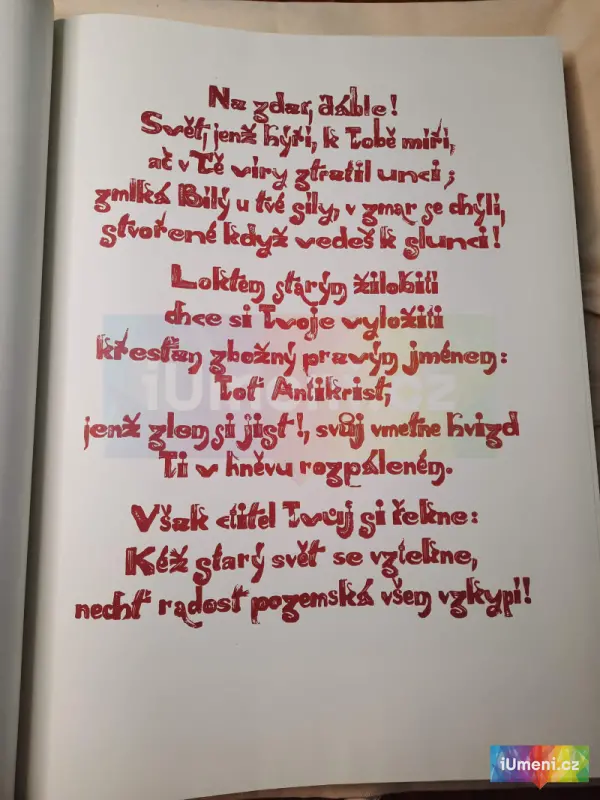 Na zdar, ďáble!
Svět, jenž hýří, k Tobě míří,
ač v Tě víry ztratil unci;
zmlká Bílý u tvé síly, v zmar se chýlí,
stvořené když vedeš k slunci!
Loktem starým žilobití
chce si Tvoje vyložiti
křesťan zbožný pravým jménem:
Toť Antikrist,
jenž zlem si jist!, svůj vmetne hvizd
Ti v hněvu rozpáleném.
Však ctitel Tvůj si řekne:
Kéž starý svět se vztekne,
nechť radost pozemská všem vzkypí!
iUmeni.cz
iUmeni.cz